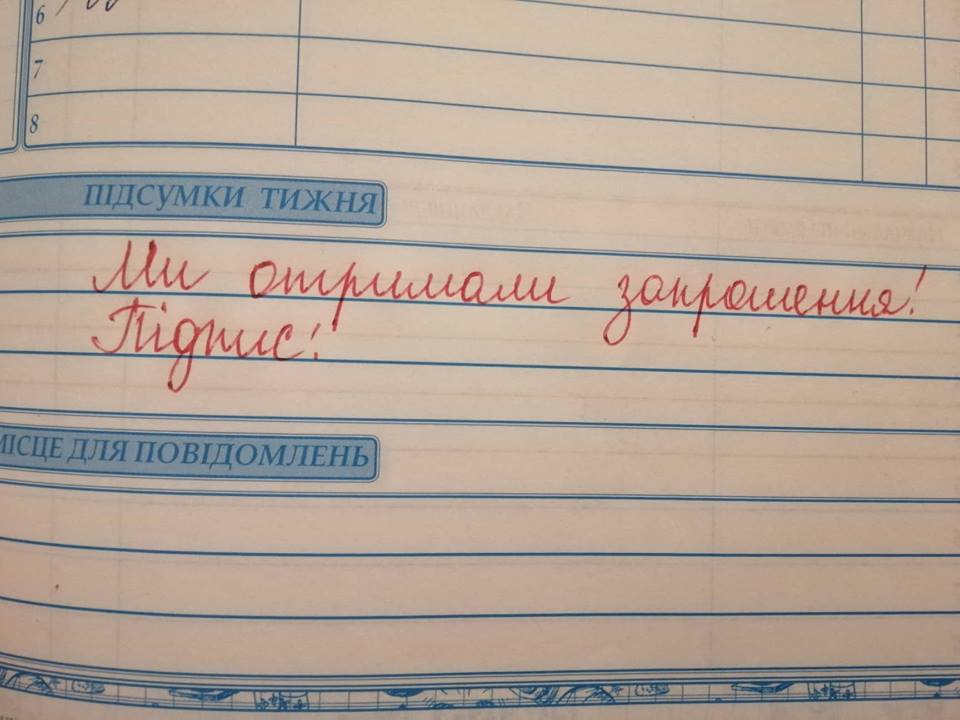 6
7
8
ПІДСУМКИ ТИЖНЯ
Ми отримали запрошення!
Підпис!
МІСЦЕ ДЛЯ ПОВІДОМЛЕНЬ